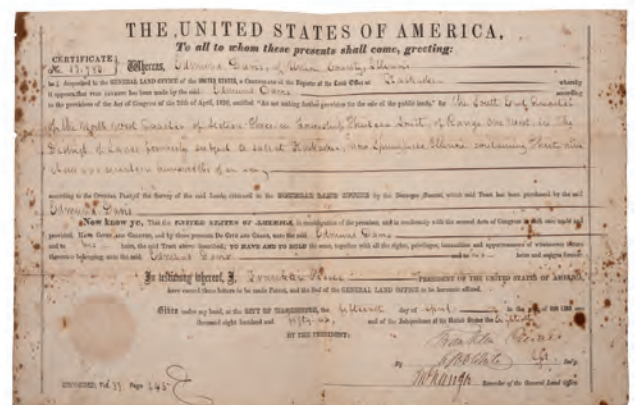 THE UNITED STATES OF AMERICA,
To all to whom these presents shall come, greeting:
CERTIFICATE
No. Whereas, Edmund Davis, of Union County, Illinois
ha deposited in the GENERAL LAND OFFICE of the UNITED STATES, a Certificate of the Register of the Land Office at Kaskaskia whereby
it appears that full payment has been made by the said Edmund Davis according
to the provisions of the Act of Congress of the 24th of April, 1820, entitled "An act making further provision for the sale of the public lands," for the South East Quarter
of the North West Quarter of Section Three in Township Thirteen South, of Range One West, in the
District of Lands formerly subject to sale at Kaskaskia, now Springfield Illinois containing Thirty nine
acres and seventeen hundredths of an acre
according to the Official Plat of the Survey of the said Lands, returned to the GENERAL LAND OFFICE by the Surveyor General, which said Tract has been purchased by the said
Edmund Davis
Now know ye, That the UNITED STATES OF AMERICA, in consideration of the premises, and in conformity with the several Acts of Congress in such case made and
provided, HAVE GIVEN AND GRANTED, and by these presents DO GIVE AND GRANT, unto the said Edmund Davis
and to his heirs, the said Tract above described; TO HAVE AND TO HOLD the same, together with all the rights, privileges, immunities and appurtenances of whatsoever nature
thereunto belonging, unto the said Edmund Davis and to his heirs and assigns forever.
In testimony whereof, I, Franklin Pierce PRESIDENT OF THE UNITED STATES OF AMERICA,
have caused these letters to be made Patent, and the Seal of the GENERAL LAND OFFICE to be hereunto affixed.
Given under my hand, at the CITY OF WASHINGTON, the fifteenth day of April in the year of OUR LORD one
thousand eight hundred and fifty-six and of the Independence of the United States the Eightieth
BY THE PRESIDENT: Franklin Pierce
By Sec'y.
Recorder of the General Land Office.
RECORDED, Vol. 39. Page 245